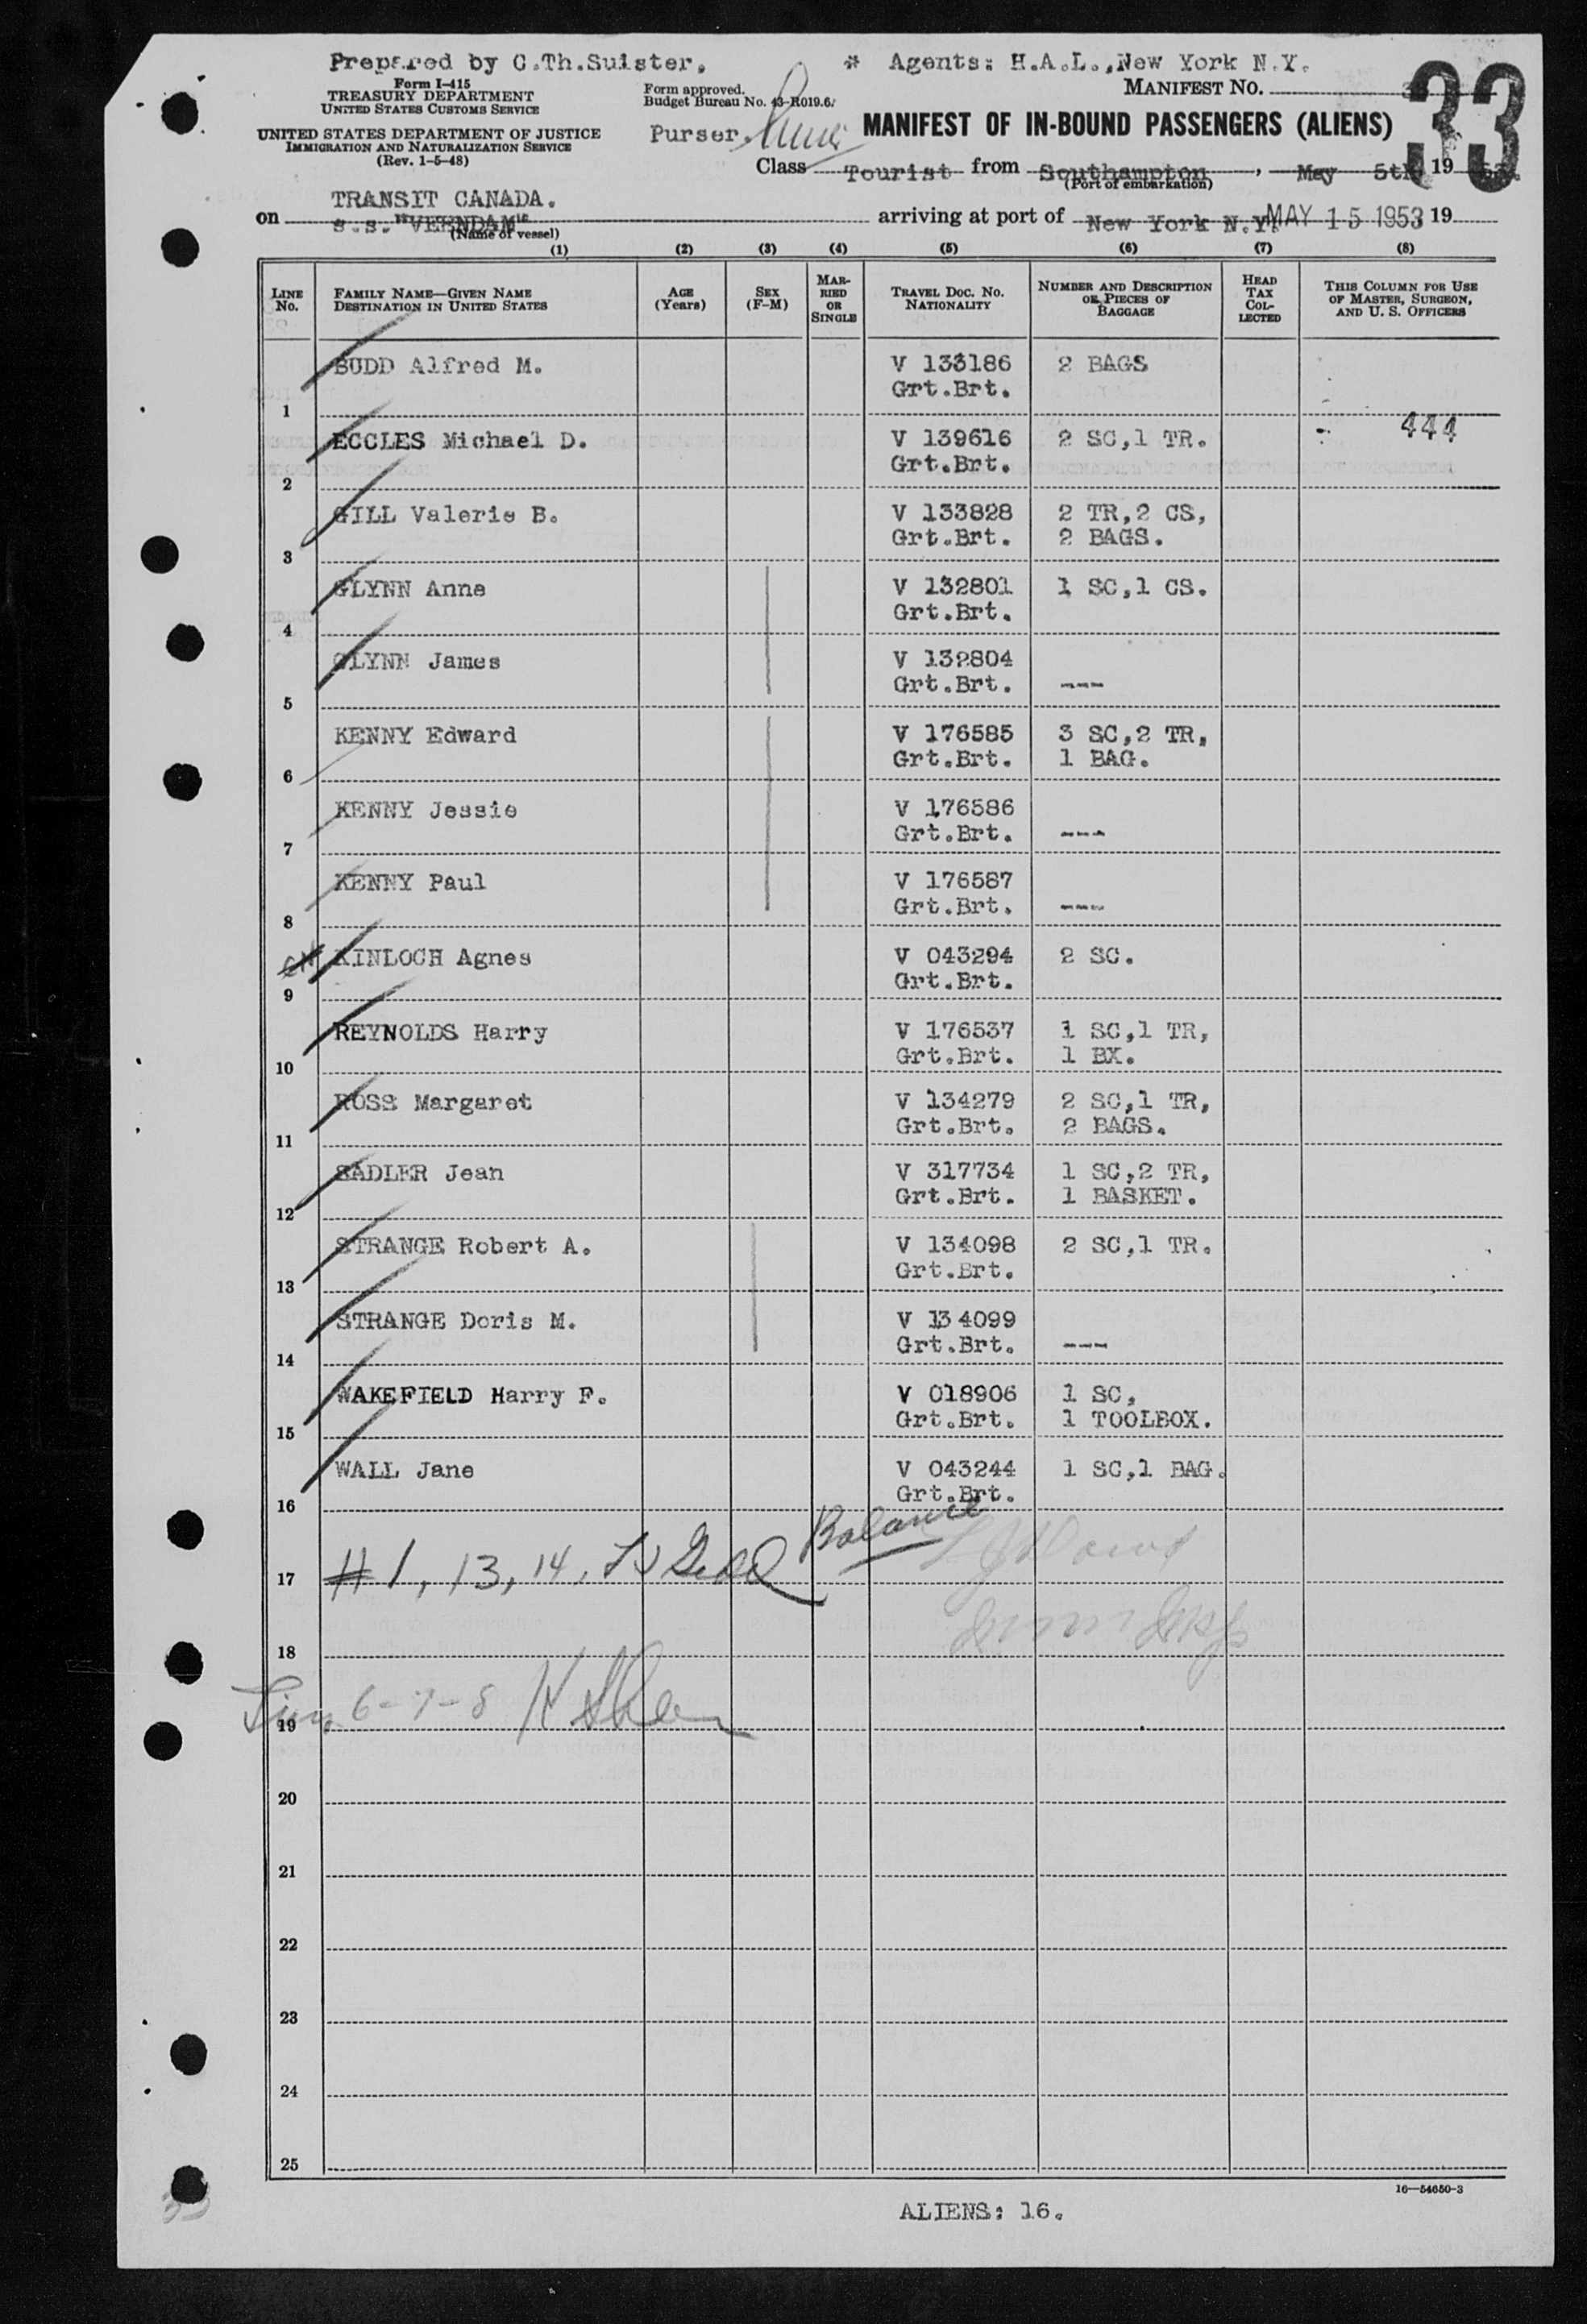 Prepared by C.Th.Suister, * Agents: H.A.L.,New York N.Y.
Form I-415
TREASURY DEPARTMENT
UNITED STATES CUSTOMS SERVICE
UNITED STATES DEPARTMENT OF JUSTICE
IMMIGRATION AND NATURALIZATION SERVICE
(Rev. 1-5-48)
Form approved.
Budget Bureau No. 43-R019.6.
Purser.
MANIFEST NO.
33
MANIFEST OF IN-BOUND PASSENGERS (ALIENS)
Class Tourist from Southampton, May 5th 19
(Port of embarkation)
TRANSIT CANADA.
on s.s. "VEENDAM" arriving at port of New York N.Y. MAY 15 1953 19
(Name of vessel)
(1) (2) (3) (4) (5) (6) (7) (8)
LINE NO. FAMILY NAME—GIVEN NAME DESTINATION IN UNITED STATES AGE (Years) SEX (F-M) MARRIED OR SINGLE TRAVEL DOC. NO. NATIONALITY NUMBER AND DESCRIPTION OF PIECES OF BAGGAGE HEAD TAX COLLECTED THIS COLUMN FOR USE OF MASTER, SURGEON, AND U. S. OFFICERS
BUDD Alfred M. V 133186 2 BAGS
Grt.Brt.
1
444
ECCLES Michael D. V 139616 2 SC,1 TR.
Grt.Brt.
2
GILL Valerie B. V 133828 2 TR,2 CS,
Grt.Brt. 2 BAGS.
3
GLYNN Anne V 132801 1 SC,1 CS.
Grt.Brt.
4
GLYNN James V 132804
Grt.Brt. ---
5
KENNY Edward V 176585 3 SC,2 TR,
Grt.Brt. 1 BAG.
6
KENNY Jessie V 176586
Grt.Brt. ---
7
KENNY Paul V 176587
Grt.Brt. ---
8
KINLOCH Agnes V 043294 2 SC.
Grt.Brt.
9
REYNOLDS Harry V 176537 1 SC,1 TR,
Grt.Brt. 1 BX.
10
ROSS Margaret V 134279 2 SC,1 TR,
Grt.Brt. 2 BAGS.
11
SADLER Jean V 317734 1 SC,2 TR,
Grt.Brt. 1 BASKET.
12
STRANGE Robert A. V 134098 2 SC,1 TR.
Grt.Brt.
13
STRANGE Doris M. V 134099
Grt.Brt. ---
14
WAKEFIELD Harry F. V 018906 1 SC,
Grt.Brt. 1 TOOLBOX.
15
WALL Jane V 043244 1 SC,1 BAG.
Grt.Brt.
16
Balance
# 1, 13, 14,
17
18
6-7-8
19
20
21
22
23
24
25
16—54650-3
ALIENS: 16.